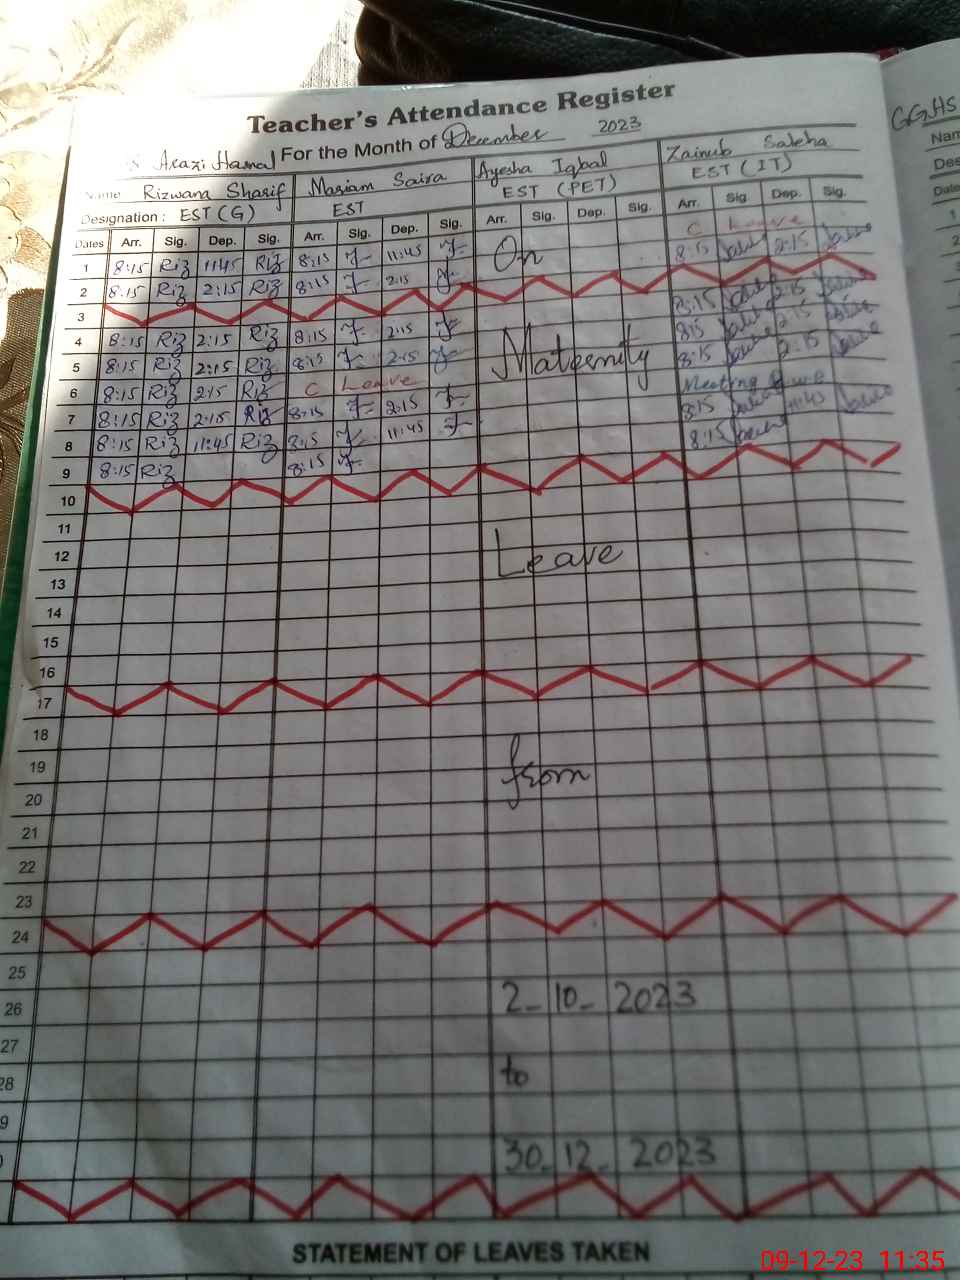 Teacher's Attendance Register
For the Month of December 2023
GGHS
Arazi Hasnal
Name Rizwana Sharif Mariam Saira Ayesha Iqbal Zainub Saleha
Designation: EST (G) EST EST (PET) EST (IT)
Dates Arr. Sig. Dep. Sig. Arr. Sig. Dep. Sig. Arr. Sig. Dep. Sig. Arr. Sig Dep. Sig.
1 8:15 Riz 11:45 Riz 8:15 11:45 On C Leave
2 8:15 Riz 2:15 Riz 8:15 2:15 8:15 2:15
3
4 8:15 Riz 2:15 Riz 8:15 2:15 8:15 2:15
5 8:15 Riz 2:15 Riz 8:15 2:15 Maternity 8:15 2:15
6 8:15 Riz 2:15 Riz C Leave 8:15 2:15
7 8:15 Riz 2:15 Riz 8:15 2:15 Meeting
8 8:15 Riz 11:45 Riz 8:15 11:45 8:15 11:45
9 8:15 Riz 8:15 8:15
10
11
12 Leave
13
14
15
16
17
18
19 from
20
21
22
23
24
25
26 2-10-2023
27
28 to
9
30-12-2023
STATEMENT OF LEAVES TAKEN
09-12-23 11:35